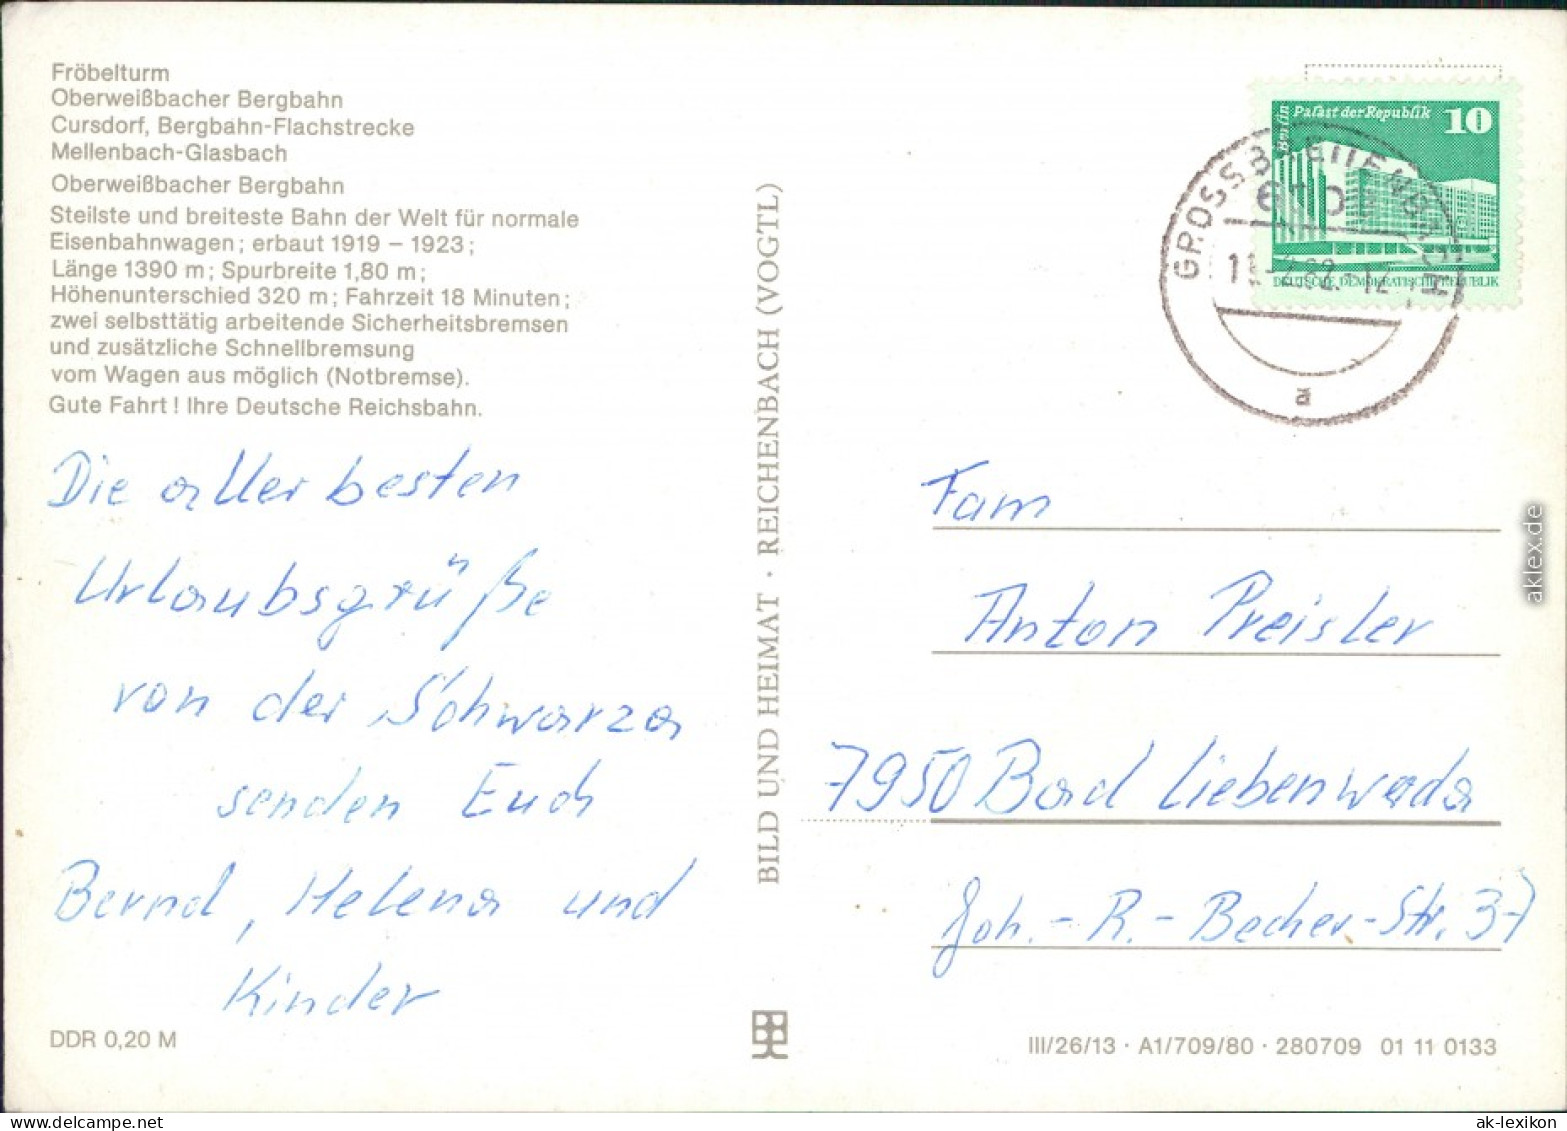 Fröbelturm
Oberweißbacher Bergbahn
Cursdorf, Bergbahn-Flachstrecke
Mellenbach-Glasbach
Oberweißbacher Bergbahn
Steilste und breiteste Bahn der Welt für normale
Eisenbahnwagen; erbaut 1919 – 1923;
Länge 1390 m; Spurbreite 1,80 m;
Höhenunterschied 320 m; Fahrzeit 18 Minuten;
zwei selbsttätig arbeitende Sicherheitsbremsen
und zusätzliche Schnellbremsung
vom Wagen aus möglich (Notbremse).
Gute Fahrt! Ihre Deutsche Reichsbahn.
Die aller besten
Urlaubsgrüße
von der Schwarza
senden Euch
Bernd, Helena und
Kinder
DDR 0,20 M
BILD UND HEIMAT · REICHENBACH (VOGTL)
Berlin
Palast der Republik 10
DEUTSCHE DEMOKRATISCHE REPUBLIK
a
Fam
Anton Preisler
7950 Bad Liebenwerda
Joh.-R.-Becher-Str. 37
III/26/13 · A1/709/80 · 280709 01 11 0133
aklex.de
ak-lexikon